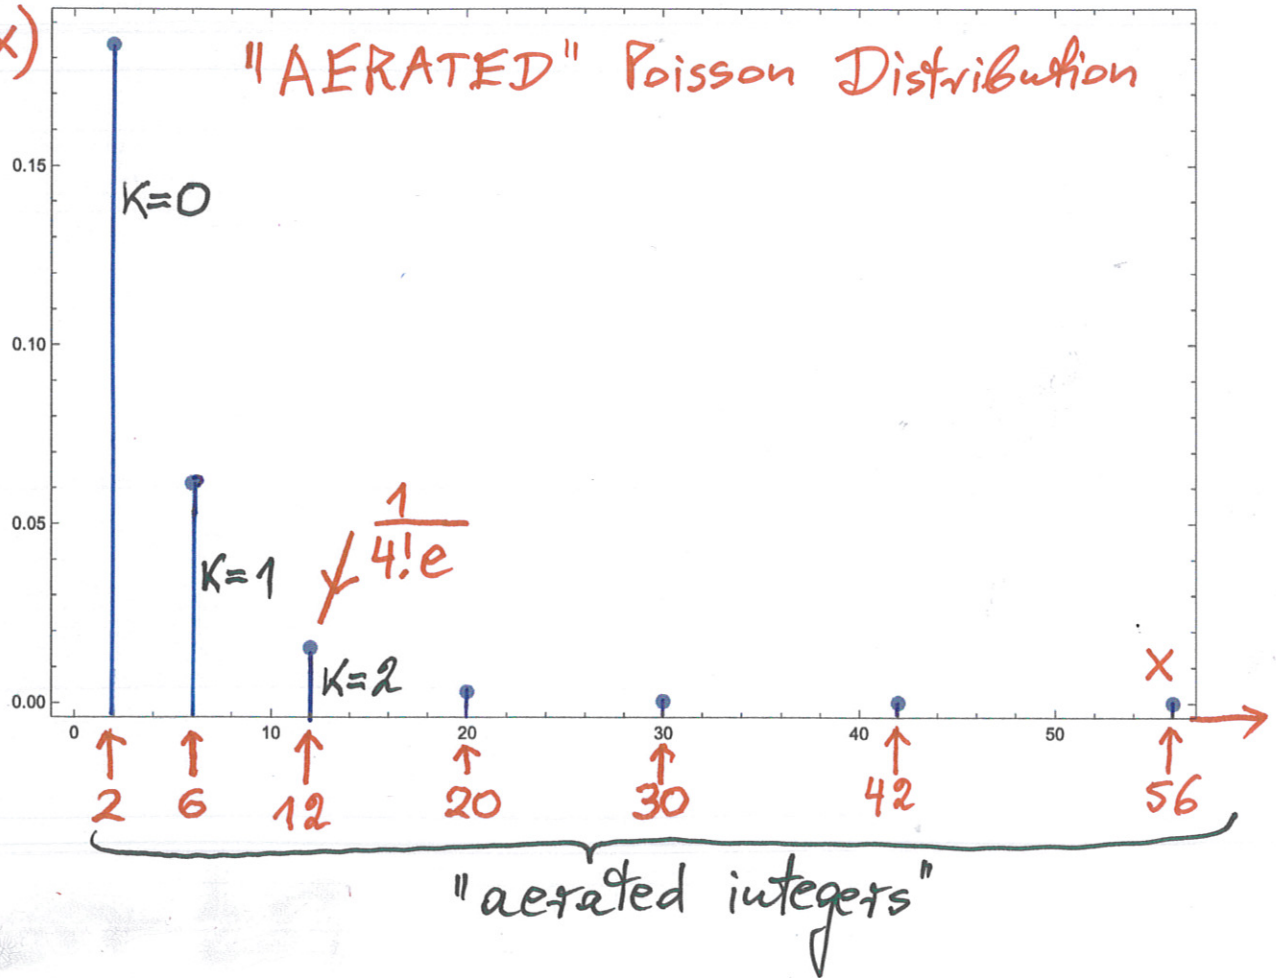 x)
"AERATED" Poisson Distribution
0.15
K=0
0.10
1
0.05
4!e
K=1
K=2
X
0.00
0 10 20 30 40 50
2 6 12 20 30 42 56
"aerated integers"